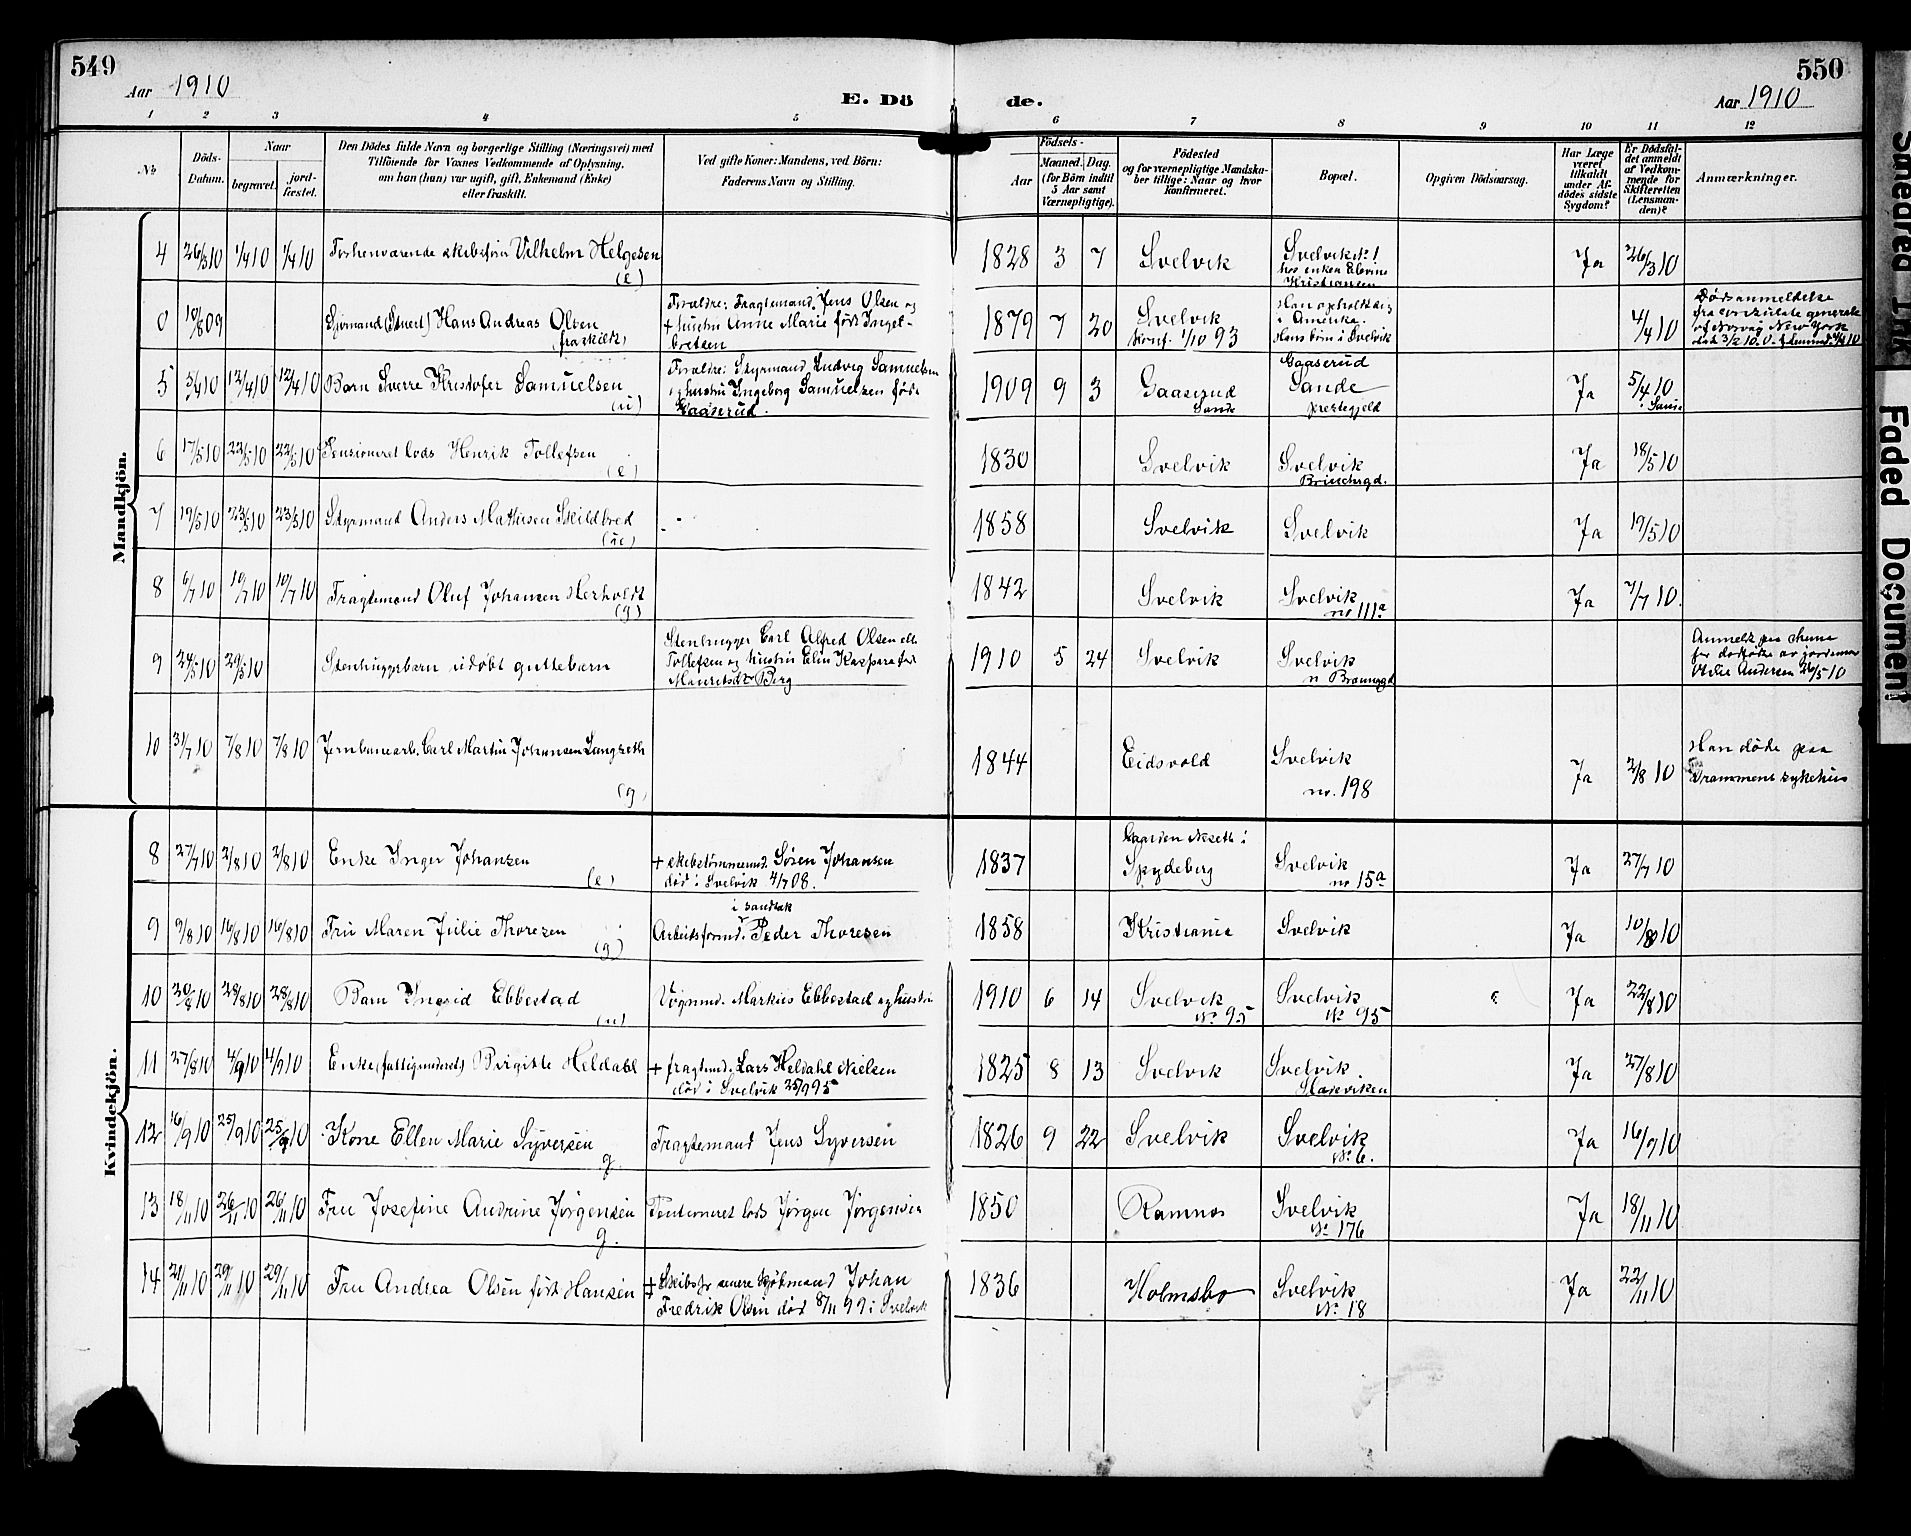 549
550
Aar 1910
E. Dö
de.
Aar 1910
1 2 3 4 5 6 7 8 9 10 11 12
No
Döds-
Datum.
Naar
begravet.
jord-
fæstet.
Den Dödes fulde Navn og borgerlige Stilling (Næringsvei) med
Tilföiende for Voxnes Vedkommende af Oplysning,
om han (hun) var ugift, gift, Enkemand (Enke)
eller fraskilt.
Ved gifte Koner: Mandens, ved Börn:
Faderens Navn og Stilling.
Födsels-
Aar
Maaned.
Dag.
(for Börn indtil
5 Aar samt
Værnepligtige).
Födested
og for værnepligtige Mandska-
ber tillige: Naar og hvor
konfirmeret.
Bopæl.
Opgiven Dödsaarsag.
Har Læge
været
tilkaldt
under Af-
dödes sidste
Sygdom?
Er Dödsfal-
det anmeldt
af Vedkom-
mende for
Skifteretten
(Lensman-
den)?
Anmærkninger.
Mandkjön.
4 26/3 10 1/4 10 1/4 10 Forhenværende skibsförer Vilhelm Helgesen (e) 1828 3 7 Svelvik Svelvik No 1
hos enken Elevine
Kristiansen
Ja 26/3 10
0 10/6 09 Sjömand Hans Andreas Olsen
(fraskilt)
Forældre: Fragtemand Jens Olsen og
+ hustru Anne Marie født Ingel-
bretsen
1879 7 20 Svelvik
Konf. 1/10 93
Han opholdt sig
i Amerika.
Hans hjem i Svelvik
4/4 10
Dødsanmeldelse
fra konsulatet generale
New York
dat 3/2 10.
5 5/4 10 12/4 10 12/4 10 Barn Sverre Kristofer Samuelsen
(u)
Forældre: Styrmand Ludvig Samuelsen
og hustru Ingeborg Samuelsen født
Gaaserud.
1909 9 3 Gaaserud
Sande
Gaaserud
Sande
prestegjeld
Ja 5/4 10
i Sande
6 17/5 10 22/5 10 22/5 10 Pensioneret lods Henrik Tollefsen
(e)
1830 Svelvik Svelvik
Ja 18/5 10
7 19/5 10 23/5 10 23/5 10 Styrmand Anders Mathisen Skildbred
(u)
1858 Svelvik Svelvik Ja 19/5 10
8 6/7 10 10/7 10 10/7 10 Fragtemand Oluf Johansen Herholdt
(g)
1842 Svelvik Svelvik
no 111a
Ja 7/7 10.
9 24/5 10 29/5 10 Stenhuggerbarn udøbt guttebarn
Stenhugger Carl Alfred Olsen ell.
Tollefsen og hustru Elin Kaspara født
Mauritsdtr Berg
1910 5 24 Svelvik Svelvik
Anmeldt paa skema
for dødfødte av jordemor
Andersen 26/5 10
10 31/7 10 7/8 10 7/8 10 Jernbanearb. Carl Martin Johansen Langseth
(g)
1844 Eidsvold Svelvik
no. 198
Ja 2/8 10
Han døde paa
Drammens sykehus
Kvindekjön.
8 27/7 10 2/8 10 2/8 10 Enke Inger Johansen
(e)
+ skibstømmermd. Søren Johansen
død i Svelvik 4/7 08.
1837 Gaarden Næseth i
Spydeberg
Svelvik
no 15a
Ja 27/7 10
9 9/8 10 16/8 10 16/8 10 Fru Maren Julie Thoresen
(g)
i sandtak
Arbeidsformd. Peder Thoresen
1858 Kristiania Svelvik Ja 10/8 10
10 20/8 10 28/8 10 28/8 10 Barn Ingrid Ebbestad
(u)
Vognmd. Markus Ebbestad og hustru
1910 6 14 Svelvik
No 95
Svelvik
No 95
Ja 22/8 10
11 27/8 10 4/9 10 4/9 10 Enke (fattigunderst) Birgitte Heldahl
+ fragtmd. Lars Heldahl Nielsen
død i Svelvik 25/9 95
1825 8 13 Svelvik Svelvik
Mareviken
Ja 27/8 10
12 16/9 10 25/9 10 25/9 10 Kone Ellen Marie Syversen
g
Fragtemand Jens Syversen
1826 9 22 Svelvik Svelvik
No 6.
Ja 16/9 10
13 18/11 10 26/11 10 26/11 10 Fru Josefine Andrine Jörgensen
g.
Pensioneret lods Jörgen Jörgensen
1850 Ramnes Svelvik
No 176
Ja 18/11 10
14 21/11 10 29/11 10 29/11 10 Fru Andrea Olsen født Hansen
+ Skibsfr. senere kjøbmand Johan
Fredrik Olsen død 8/11 99 i Svelvik
1836 Holmsbo Svelvik
No 18
Ja 22/11 10
Smeared Ink
Faded Document